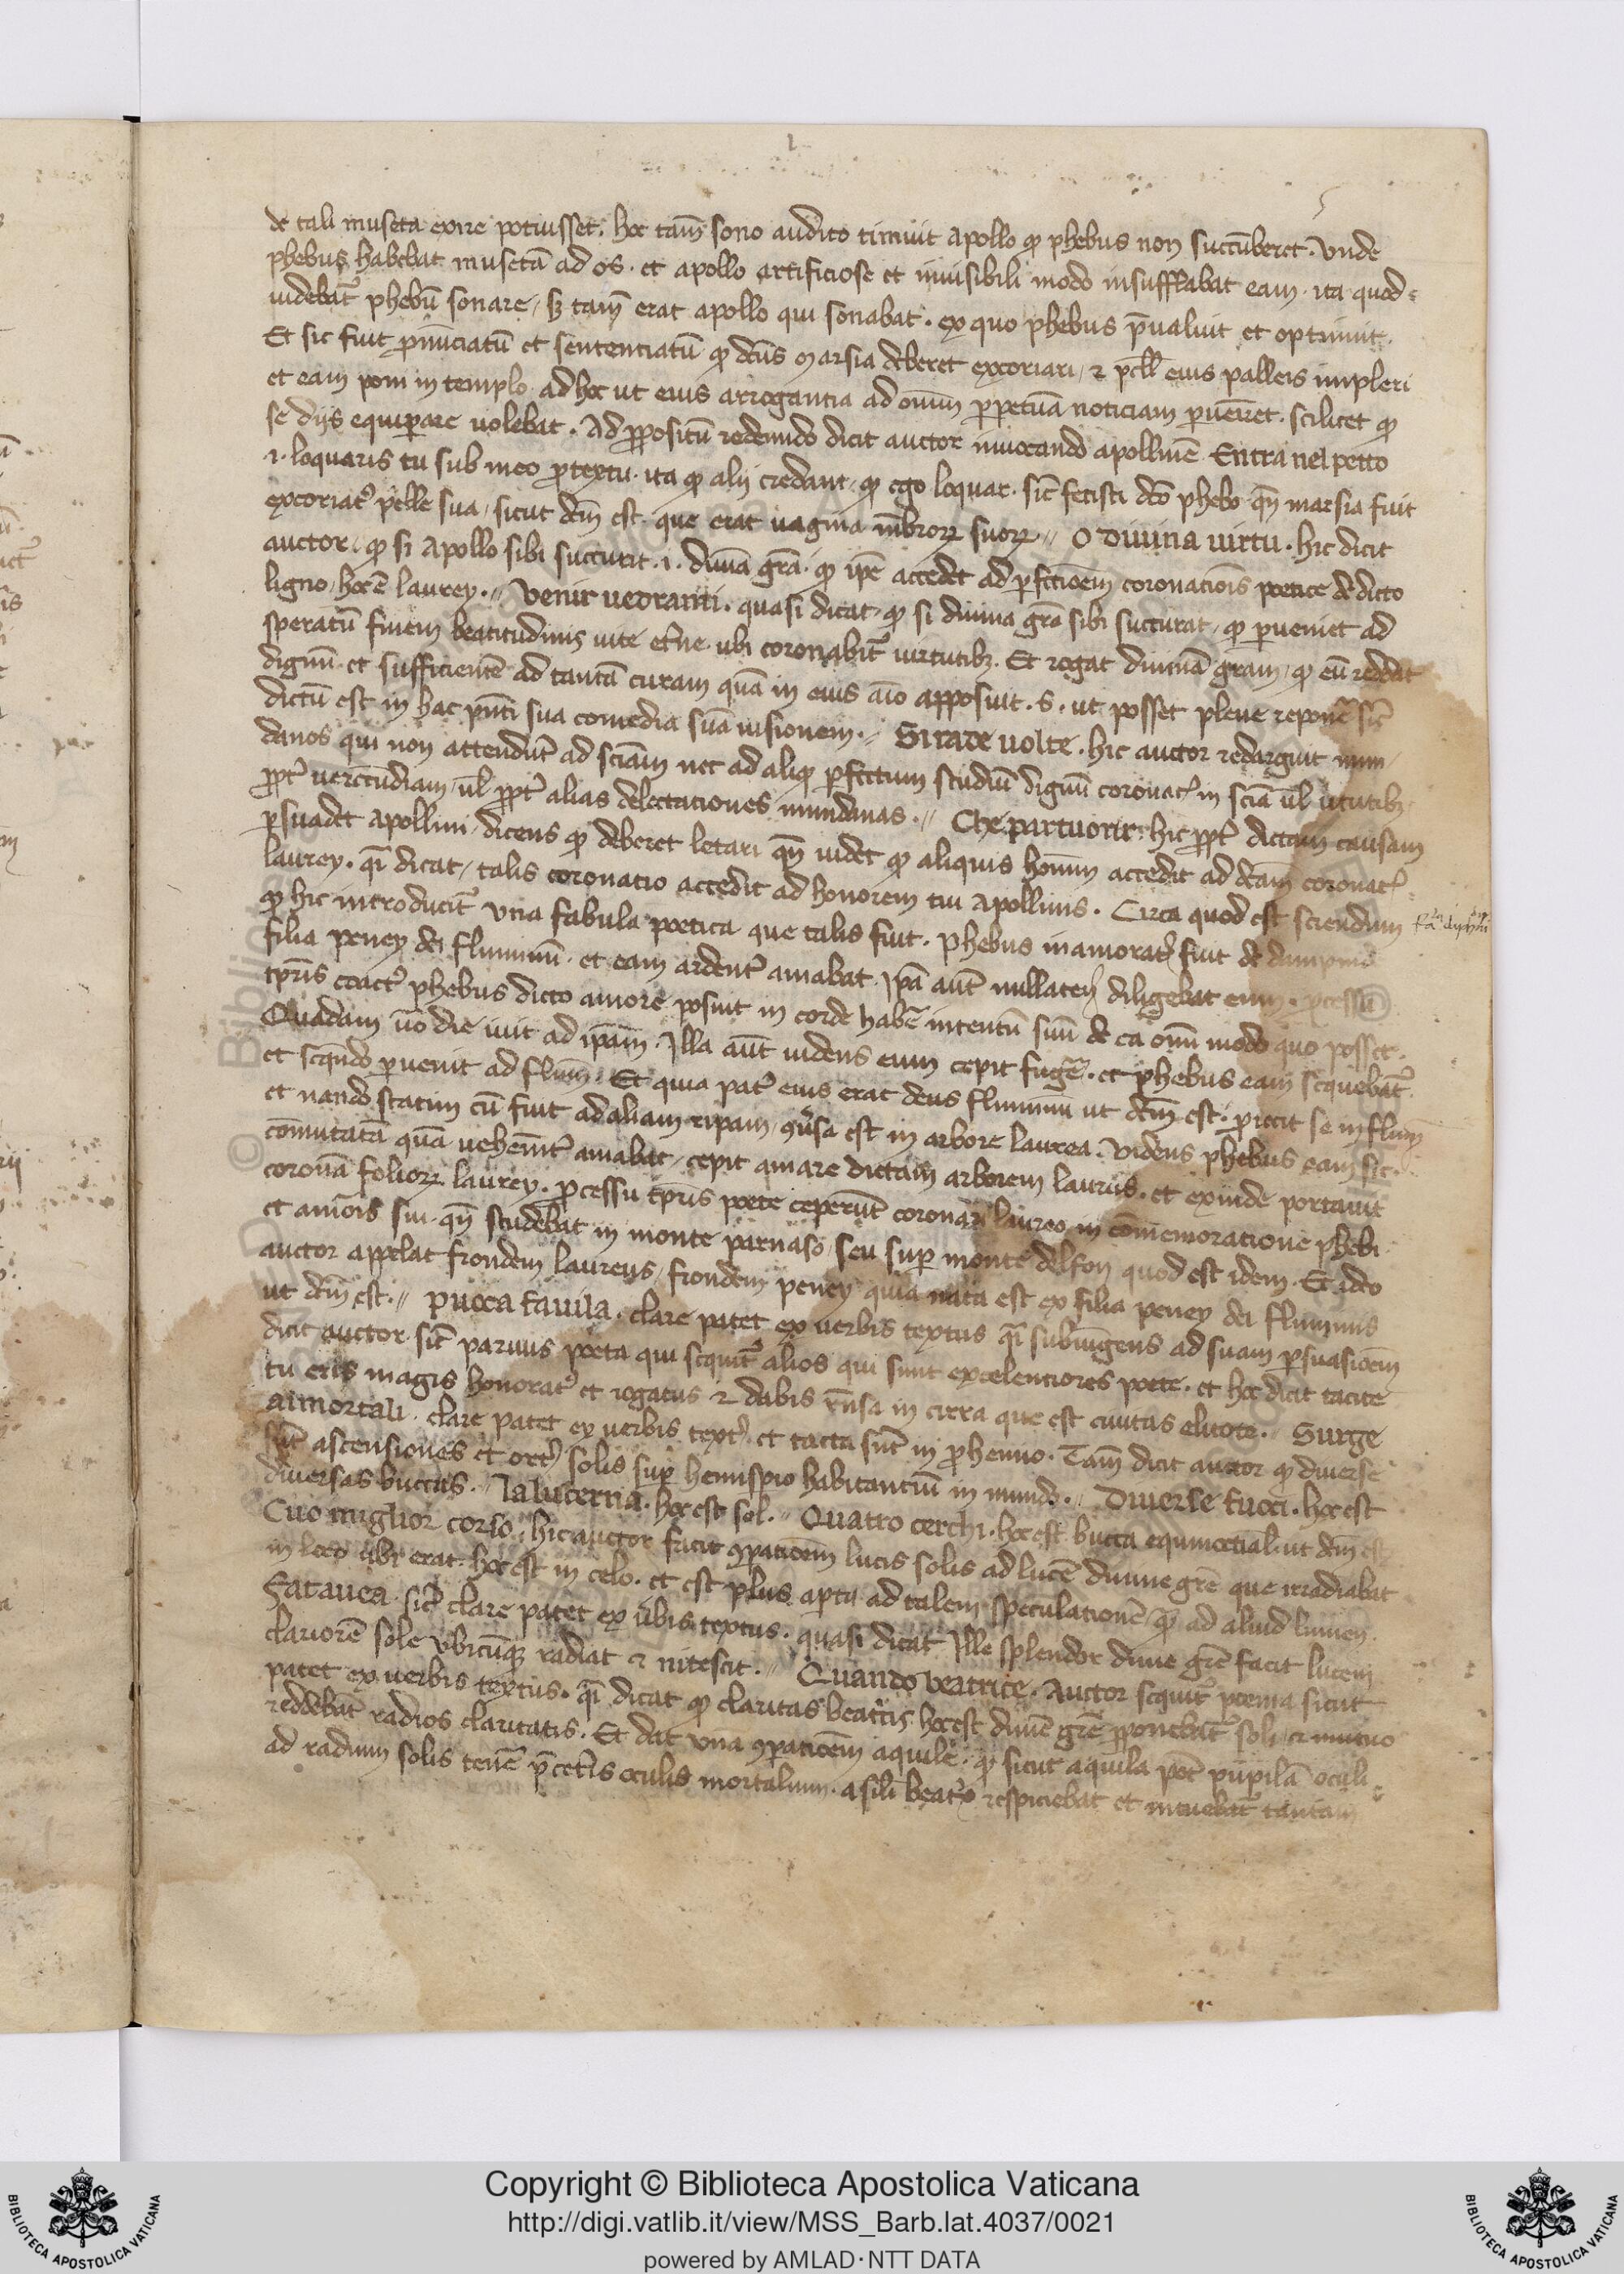 de tali museta exire potuisset. hoc tam̄ sono audito timuit apollo ꝙ phebus non succūberet. Vnde
phebus habebat musetā ad os. et apollo artificiose et inuisibili modo insufflabat eam. ita quod
uidebat᷑ phebū sonare / sꝫ tam̄ erat apollo qui sonabat. ex quo phebus p̄ualuit et optinuit.
Et sic fuit ꝓnūciatū et sententiatū ꝙ dc̄us marsia deberet excoriari / ⁊ pell̄ eius palleis impleri
et eam poni in templo ad hoc ut eius arrogantia ad oīum ꝑpetuā noticiam ꝑuenīret. scilicet ꝙ
se dijs equiꝑare uolebat. Ad ꝓpositū redeundo dicit auctor inuocando apollinē Entra nel petto
.i. loquaris tu sub meo ꝓtextu. ita ꝙ alij credant / ꝙ ego loquar. sic̄ fecisti dc̄o phebo qn̄ marsia fuit
excoriat᷒ pelle sua / sicut dc̄m est. que erat uagina mēbroꝝ suoꝝ. // O Diuina uirtu. hic dicit
auctor. ꝙ si Apollo sibi succurit .i. diuīa gr̄a. ꝙ ip̄e accedet ad ꝑfectiōem coronatiōis poetice de dicto
ligno / hoc ē laurey. // Venir uedraiti. quasi dicat. ꝙ si diuina gr̄a sibi succurat. ꝙ ꝑueniet ad
speratū finem beatitudinis uite et̄ne ubi coronabit᷑ uirtutibꝫ. Et rogat diuinā gratiam. ꝙ eū reddat
dignū et sufficientē ad tantā curam quā in eius aīo apposuit. s. ut posset plene reponē᷒ sic̄
dictū est in hac pn̄ti sua comedia suā uisionem. // Si rade uolte. hic auctor redarguit mun
danos qui non attendūt ad sciām nec ad aliqđ ꝑfectum studiū dignū coronat᷒ in scīa ūl ūtutibꝫ
ꝓpt᷒ uerecūdiam / ūl ꝓpt᷒ alias delectationes mundanas. // Che partuorir. hic ꝓpt᷒ dictam causam
ꝑsuadet apollini / dicens ꝙ deberet letari qn̄ uidet ꝙ aliquis hoīum accedit ad dc̄am coronat᷒
laurey. qī dicat / talis coronatio accedit ad honorem tui apollinis. Circa quod est sciendum
ꝙ hic introducit᷑ vna fabula poetica que talis fuit. phebus inamorat᷒ fuit de dampnis
filia peney dei fluminū. et eam ardent᷒ amabat. Ip̄a aut̄ nullaten᷒ diligebat eum. ꝓcessu
tꝑis coact᷒ phebus dicto amore posuit in corde habē᷒ intentū suū de ea om̄i modo quo posset.
Quadam ūo die iuit ad ip̄am. Illa aut̄ uidens eum cepit fugē᷒. et phebus eam sequebat᷑.
et sequēdo ꝑuenit ad flum̄. Et quia pat᷒ eius erat deus fluminū ut dc̄m est. ꝓiecit se in flum̄
et nando statim cū fuit ad aliam ripam / ꝯuersa est in arbore laurea. videns phebus eam sic
cōmutatā quā uehemēt᷒ amabat / cepit amare dictam arborem laurus. et exinde portauit
coronā folioꝝ laurey. ꝓcessu tꝑis poete ceperūt coronari laureo in cōmemoratione phebi
et amoris sui. qn̄ studebat in monte parnaso / seu suꝑ monte delfon quod est idem. Et ideo
auctor appellat frondem laureus / frondem peney. quia nata est ex filia peney dei fluminis
ut dc̄m est. // Pocca fauila. clare patet ex uerbis textus qī subiungens ad suam ꝑsuasiōem
dicit auctor. sic̄ paruus poeta qui sequit᷑ alios qui sunt excelentiores poete. et hoc dicit tacite
tu eris magis honorat᷒ et rogatus ⁊ dabis rn̄sa in cirra que est ciuitas elicote. Surge
ai mortali. clare patet ex uerbis text᷒. et tacta sūt in ꝓhemio. Tam̄ dicit auctor ꝙ diuerse
sūt ascensiones et ort᷒ solis suꝑ hemispio habitantiū in mundo. // Diuerse fuoci. hoc est
diuersas buccas. // La lucerna. hoc est sol. // Quatro cerchi. hoc est bucca equinoctial᷒. ut dc̄m est.
Cuo miglior corso. hic auctor facit ꝯꝑatiōem lucis solis ad lucē diuine gr̄e que irradiabat
in loco ubi erat. hoc est in celo. et est plus aꝑta ad talem speculationē / ꝙ ad aliud lumen.
Fatauea. sic̄ clare patet ex ūbis textus. quasi dicat Ille splendor diuine gr̄e facit lucem
clariorē sole vbicūqꝫ radiat ⁊ nitescit. // Quando beatrice. Auctor sequit᷑ poema sicut
patet ex uerbis textus. qī dicat ꝙ claritas beatricis hoc est diuīe gr̄e ꝓponebat᷑ soli ⁊ mutuo
reddebant radios claritatis. Et dat vnā ꝯꝑatiōem aquile. ꝙ sicut aquila pōt pupilā oculi
ad radium solis tenē᷒ p̄ cet̄is oculis mortalium. a sili beat᷒x respiciebat et intuebat᷑ tantam
Copyright © Biblioteca Apostolica Vaticana
http://digi.vatlib.it/view/MSS_Barb.lat.4037/0021
powered by AMLAD·NTT DATA
BIBLIOTECA APOSTOLICA VATICANA
BIBLIOTECA APOSTOLICA VATICANA